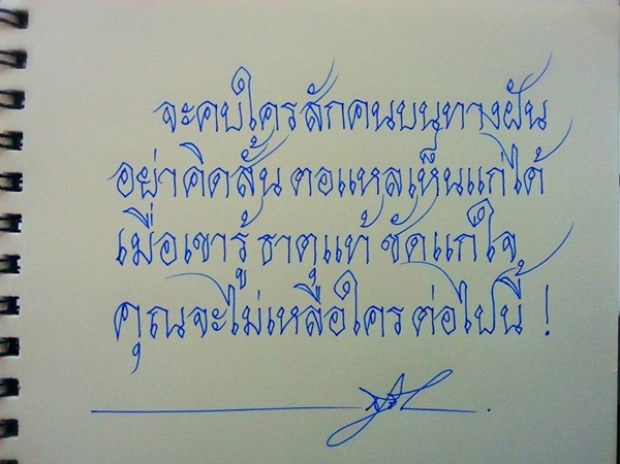 จะคบใครสักคนบนทางฝัน
อย่าคิดสั้น ตอแหลเห็นแก่ได้
เมื่อเขารู้ ธาตุแท้ ชัดแก่ใจ
คุณจะไม่เหลือใครต่อไปนี้ !